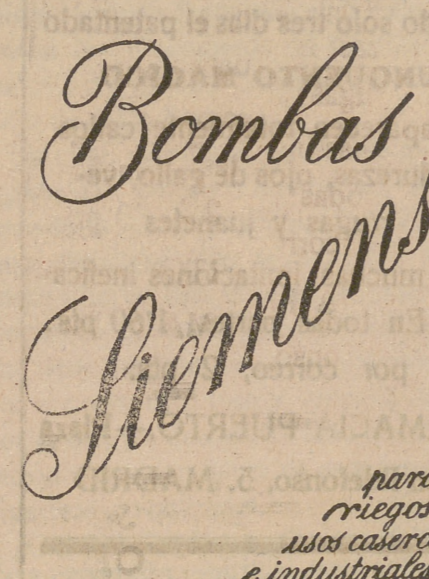 Bombas
Siemens
para
riegos
usos casero
e industriales